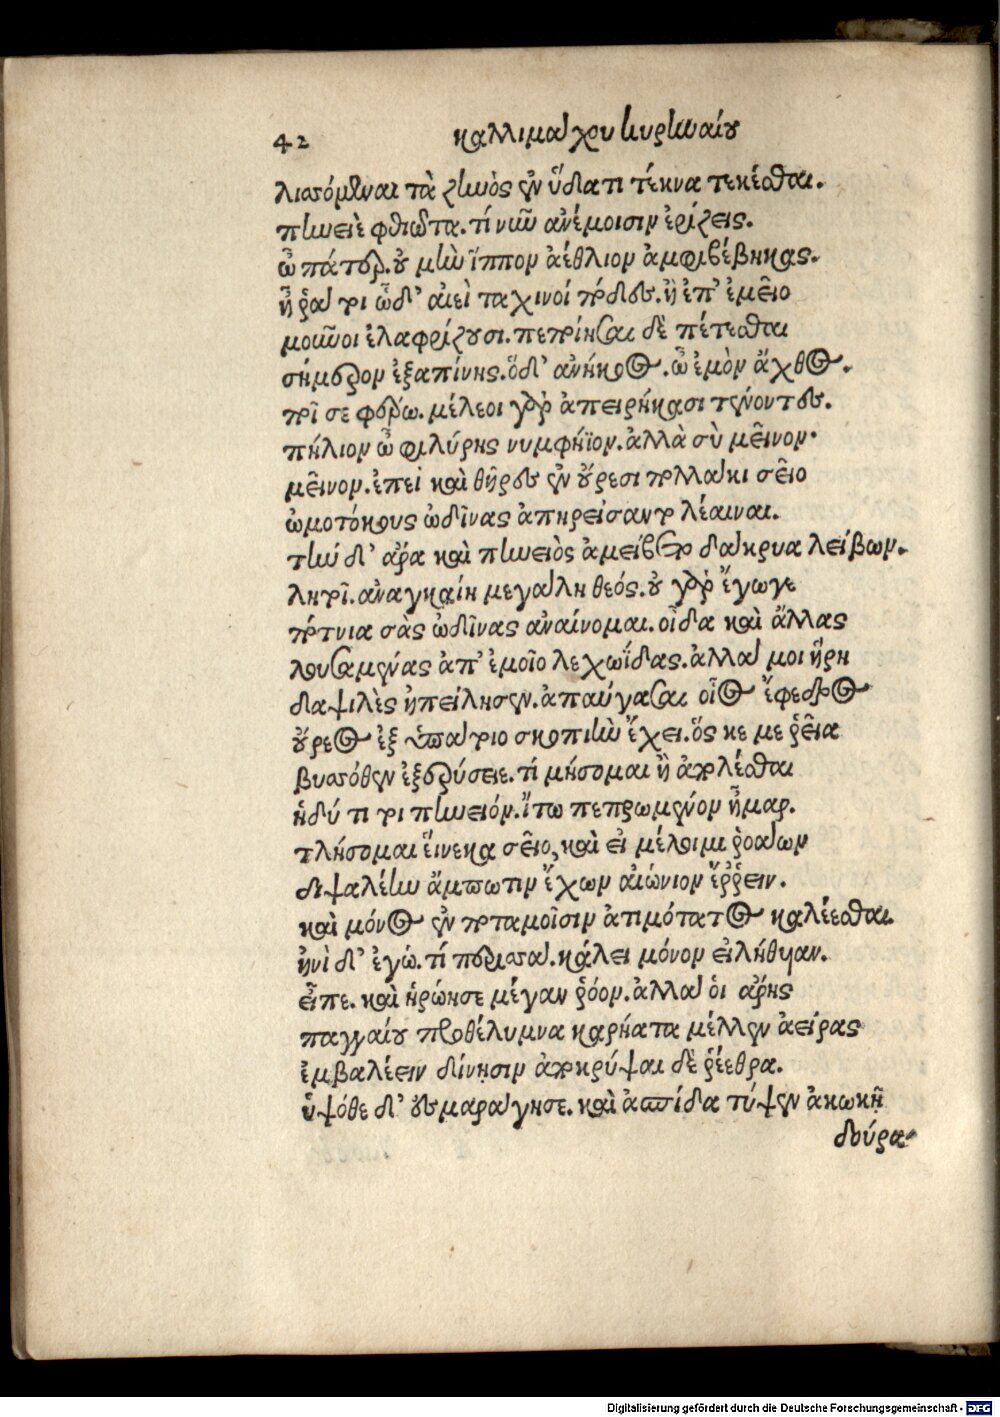 42 καλλιμάχου κυρηναίου
λισσόμεναι τὰ ζηνὸς ἐν ὕδατι τέκνα τεκέσθαι.
πηνειὲ φθιῶτα. τί νῦν ἀνέμοισιν ἐρίζεις.
ὦ πάτερ. οὐ μὴν ἵππον ἀέθλιον ἀμφιβέβηκας.
ἦ ῥά τοι ὧδ' αἰεὶ ταχινοί πόδες. ἢ ἐπ' ἐμεῖο
μοῦνοι ἐλαφρίζουσι. πεποίησαι δὲ πέτεσθαι
σήμερον ἐξαπίνης. ὅδ' ἀνήκοος. ὦ ἐμὸν ἄχθος.
ποῖ σε φέρω. μέλεοι γὰρ ἀπειρήκασι τένοντες.
πήλιον ὦ φιλύρης νυμφήϊον. ἀλλὰ σὺ μεῖνον·
μεῖνον. ἐπεὶ καὶ θῆρες ἐν οὔρεσι πολλάκι σεῖο
ὠμοτόκους ὠδῖνας ἀπηρείσαντο λέαιναι.
τὴν δ' ἄρα καὶ πηνειὸς ἀμείβετο δάκρυα λείβων.
λητοῖ. ἀναγκαίη μεγάλη θεός. οὐ γὰρ ἔγωγε
πότνια σὰς ὠδῖνας ἀναίνομαι. οἶδα καὶ ἄλλας
λουσαμένας ἀπ' ἐμοῖο λεχωΐδας. ἀλλά μοι ἥρη
δαψιλὲς ἠπείλησεν. ἀπαύγασαι οἷος ἔφεδρος
οὔρεος ἐξ ὑπάτοιο σκοπιὴν ἔχει. ὅς κε με ῥεῖα
βυσσόθεν ἐξερύσειε. τί μήσομαι ἢ ἀπολέσθαι
ἡδύ τι τοι πηνειόν. ἴτω πεπρωμένον ἦμαρ.
τλήσομαι εἵνεκα σεῖο, καὶ εἰ μέλοιμι ῥοάων
διψαλέην ἄμπωτιν ἔχων αἰώνιον ἔῤῥειν.
καὶ μόνος ἐν ποταμοῖσιν ἀτιμότατος καλέεσθαι.
ἠνὶ δ' ἐγώ. τί περισσά. κάλει μόνον εἰλήθυιαν.
εἶπε. καὶ ἠρώησε μέγαν ῥόον. ἀλλά οἱ ἄρης
παγγαίου προθέλυμνα καρήατα μέλλεν ἀείρας
ἐμβαλέειν δίνησιν ἀποκρύψαι δὲ ῥέεθρα.
ὑψόθε δ' ἐσμαράγησε. καὶ ἀσπίδα τύψεν ἀκωκῇ
δούρα
Digitalisierung gefördert durch die Deutsche Forschungsgemeinschaft - DFG